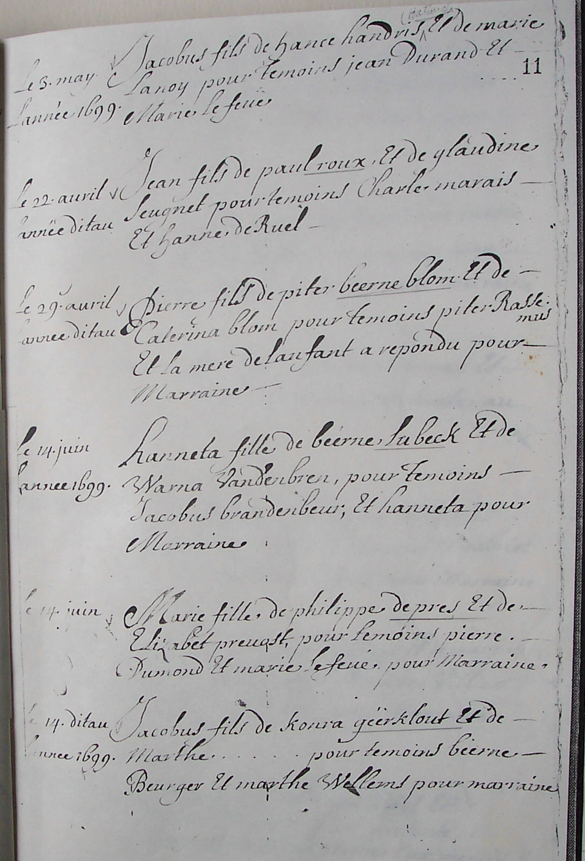 11
le 3. may Jacobus fils de hance handris Et de marie
l'année 1699. Lanoy pour Temoins jean Durand Et
Marie le feue
le 22. auril Jean fils de paul roux, Et de glaudine
année ditau Seugnet pour temoins Charle marais
Et hanne de Ruel
le 29. auril Pierre fils de piter beerne blom Et de
année ditau Caterina blom pour temoins piter Rasse-
mus
Et la mere de lanfant a repondu pour
Marraine
le 14. juin hanneta fille de béerne Lubeck Et de
lannee 1699. Warna Vandenbren, pour Temoins
Jacobus brandenbeur, Et hanneta pour
Marraine
le 14. juin Marie fille de philippe depres Et de
Elizabet preuost, pour temoins pierre
Dumond Et marie le feue, pour Marraine.
le 14. ditau Jacobus fils de Konra geërklout Et de
lannee 1699. Marthe . . . . . . pour temoins béerne
Beurger Et marthe Wellems pour marraine